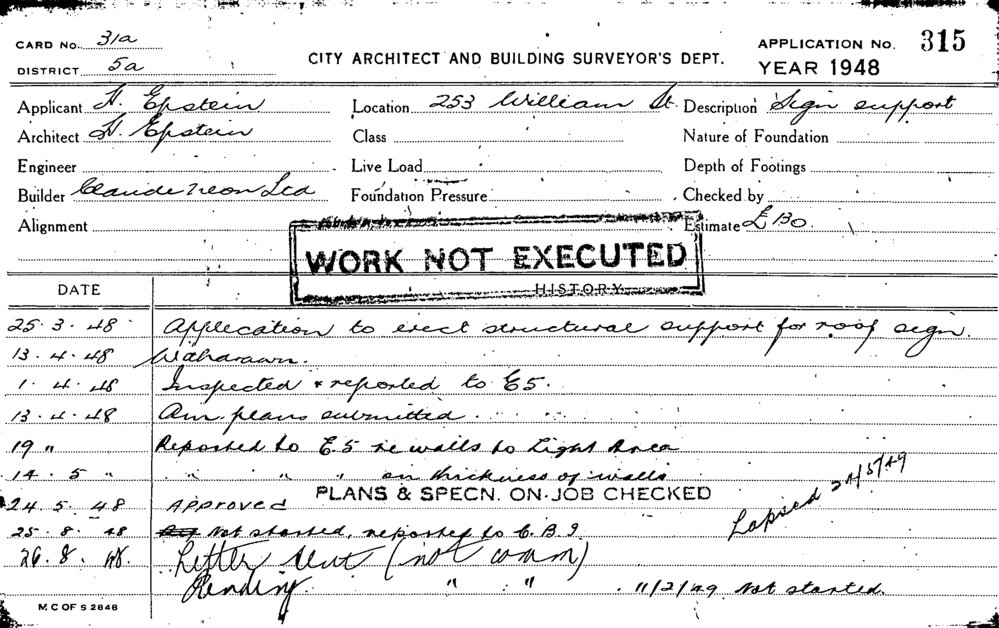 CARD No. 31a
DISTRICT 5a
CITY ARCHITECT AND BUILDING SURVEYOR'S DEPT.
APPLICATION No. 315
YEAR 1948
Applicant H. Epstein Location 253 William St. Description Sign support
Architect H. Epstein Class Nature of Foundation
Engineer Live Load Depth of Footings
Builder Claude Neon Ltd Foundation Pressure Checked by
Alignment Estimate £130
WORK NOT EXECUTED
DATE HISTORY
25.3.48 Application to erect structural support for roof sign.
13.4.48 Withdrawn.
1.4.48 Inspected & reported to E5.
13.4.48 Am. plans submitted
19 " Reported to E.5 re walls to Light Area
14.5 " " " " on thickness of walls
PLANS & SPECN. ON JOB CHECKED
24.5.48 Approved
Lapsed 24/5/49
25.8.48 Not started, reported to C.B.I.
26.8.48. Letter sent (not comm)
Pending " " 11/2/49 Not started.
M.C OF S 2848